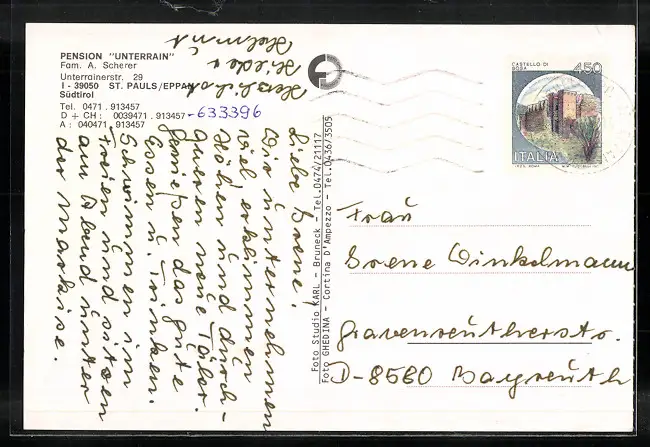 PENSION "UNTERRAIN"
Fam. A. Scherer
Unterrainerstr. 29
I - 39050 ST. PAULS/EPPAN
Südtirol
Tel. 0471 . 913457
D + CH : 0039471 . 913457
A : 040471 . 913457
-633396
Liebe Irene!
Wir unternehmen
viel, erklimmen
Höhen und durch-
queren neue Täler.
Genießen das gute
Essen u. Trinken.
Schwimmen im
Freien und sitzen
am Abend unter
der Markise.
Herzlichst
Helmut
Foto Studio KARL - Bruneck - Tel.0474/21117
Foto GHEDINA - Cortina D'Ampezzo - Tel.0436/3505
CASTELLO DI
450
ITALIA
Frau
Irene Winkelmann
Gravenreutherstr.
D-8580 Bayreuth